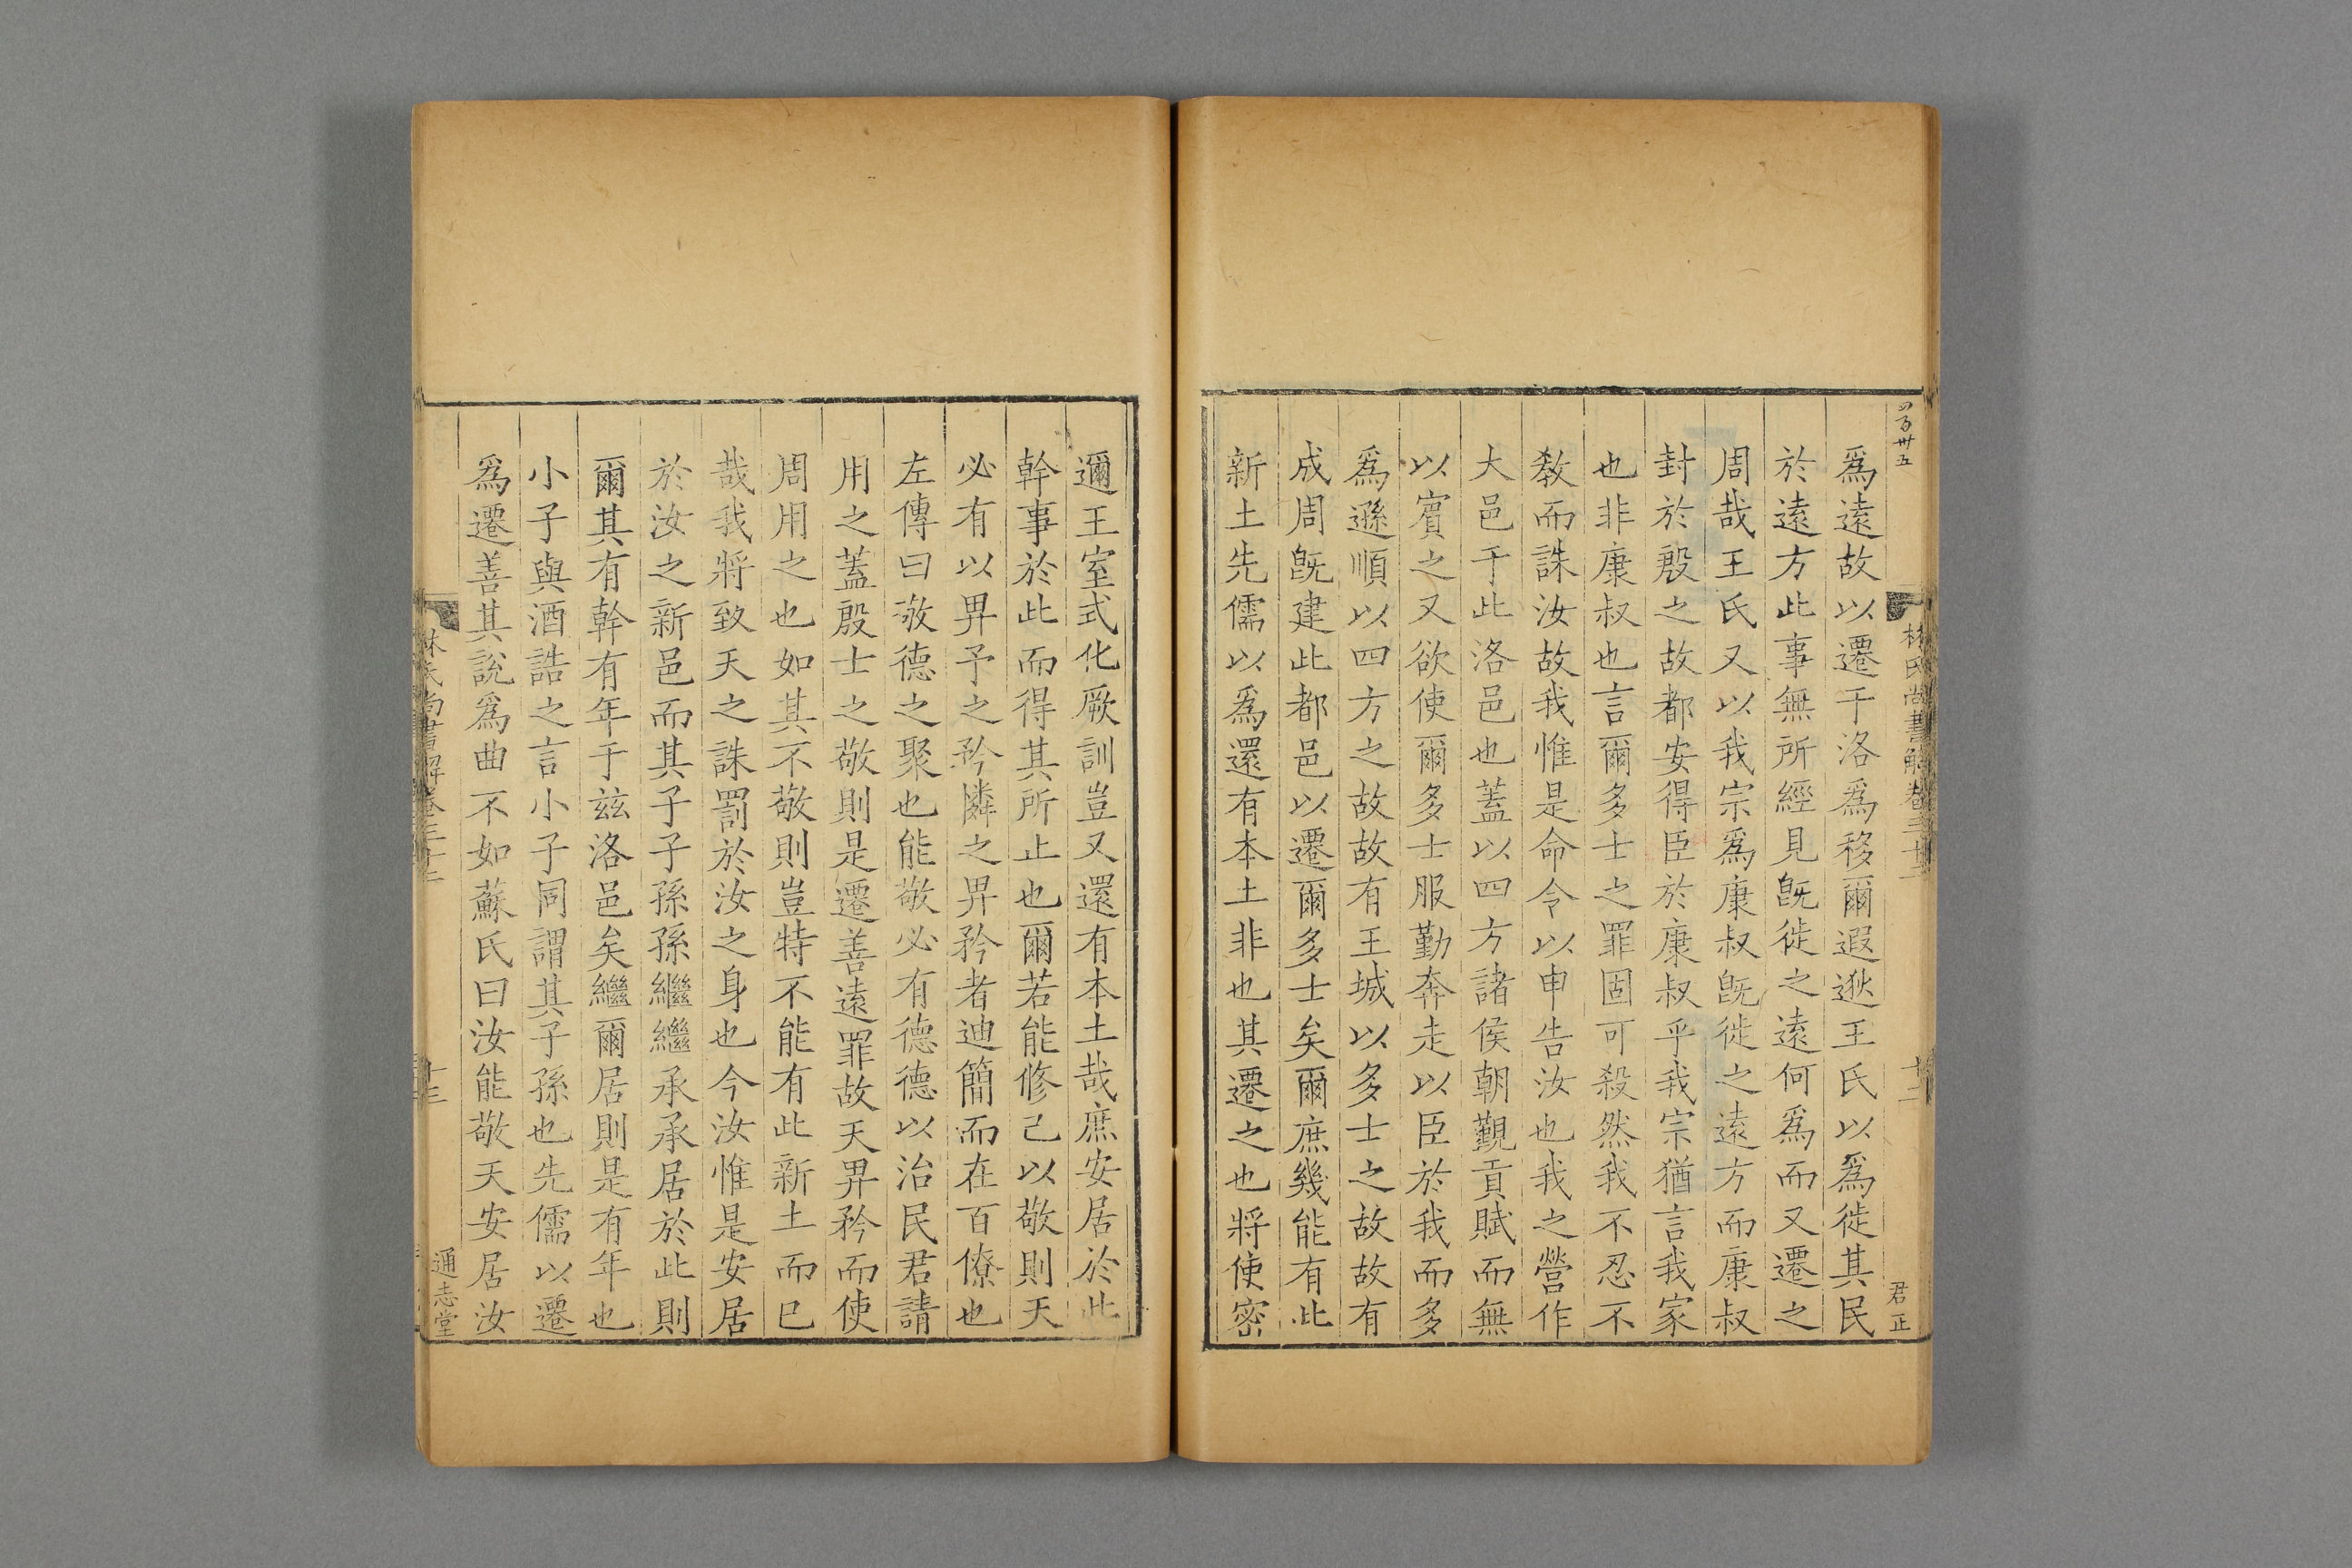 四百卅五
林氏尚書解卷三十二
十二
君正
爲遠故以遷于洛爲移爾遐逖王氏以爲徙其民
於遠方此事無所經見旣徙之遠何爲而又遷之
周哉王氏又以我宗爲康叔旣徙之遠方而康叔
封於殷之故都安得臣於康叔乎我宗猶言我家
也非康叔也言爾多士之罪固可殺然我不忍不
敎而誅汝故我惟是命令以申告汝也我之營作
大邑于此洛邑也蓋以四方諸侯朝覲貢賦而無
以賓之又欲使爾多士服勤奔走以臣於我而多
爲遜順以四方之故故有王城以多士之故故有
成周旣建此都邑以遷爾多士矣爾庶幾能有此
新土先儒以爲還有本土非也其遷之也將使密
邇王室式化厥訓豈又還有本土哉庶安居於此
幹事於此而得其所止也爾若能修己以敬則天
必有以畀予之矜憐之畀矜者迪簡而在百僚也
左傳曰敬德之聚也能敬必有德德以治民君請
用之蓋殷士之敬則是遷善遠罪故天畀矜而使
周用之也如其不敬則豈特不能有此新土而已
哉我將致天之誅罰於汝之身也今汝惟是安居
於汝之新邑而其子子孫孫繼繼承承居於此則
爾其有幹有年于兹洛邑矣繼爾居則是有年也
小子與酒誥之言小子同謂其子孫也先儒以遷
爲遷善其說爲曲不如蘇氏曰汝能敬天安居汝
林氏尚書解卷三十二
十三
通志堂